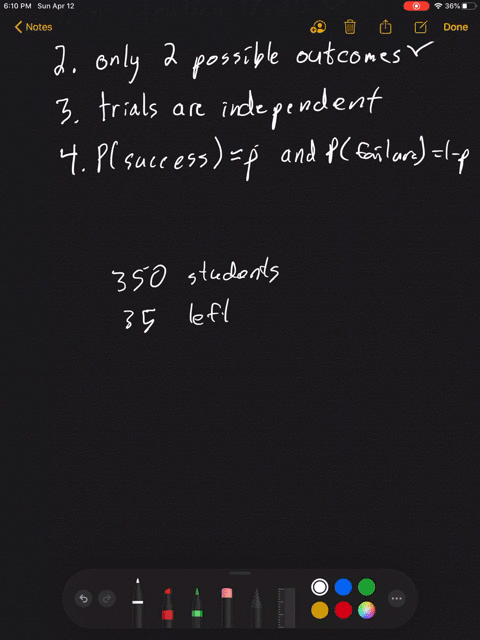 6:10 PM Sun Apr 12
36%
Notes
Done
2. only 2 possible outcomes ✓
3. trials are independent
4. P(success)=p and P(failure)=1-p
350 students
35 left